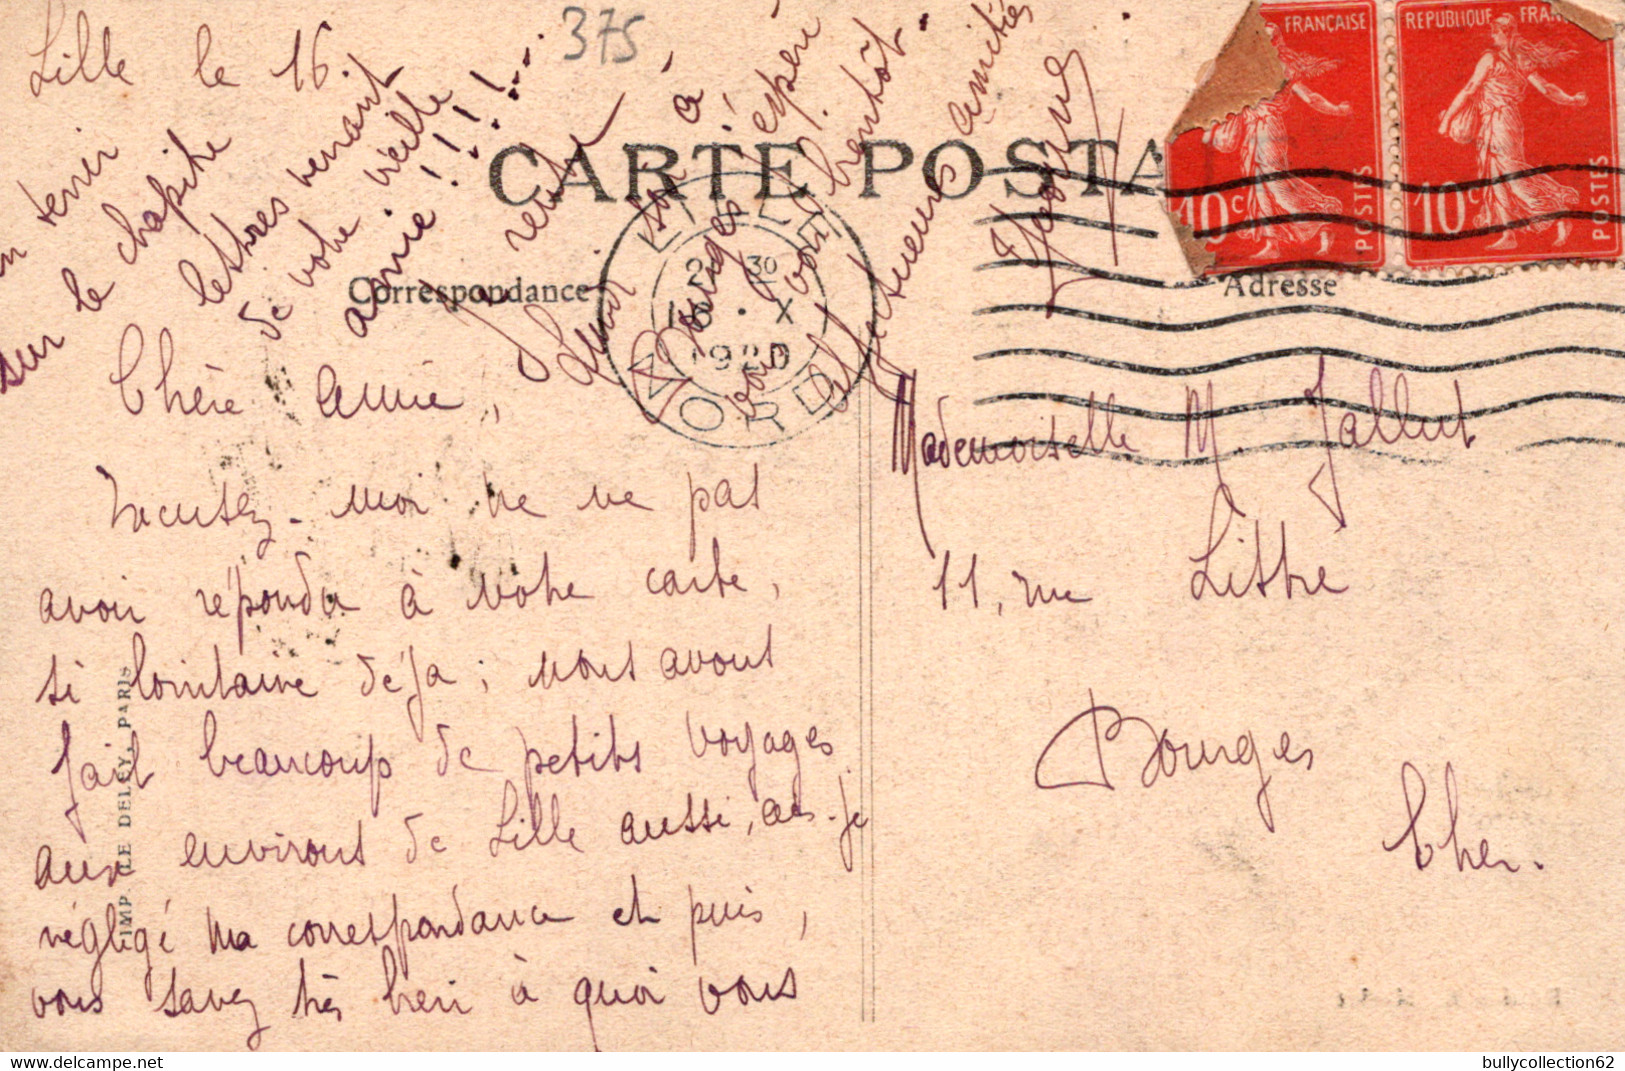 375
Lille le 16
CARTE POSTA
Correspondance
Adresse
LILLE
NORD
2 30
16 · X
1920
FRANÇAISE
10c
POSTES
REPUBLIQUE FRAN
10c
POSTES
Chère amie,
Excusez-moi de ne pas
avoir répondu à votre carte,
si lointaine déjà ; nous avons
fait beaucoup de petits voyages
aux environs de Lille aussi, ai-je
négligé ma correspondance et puis,
vous savez très bien à quoi vous
en tenir
sur le chapitre
lettres venant
de votre vieille
amie !!!!...
Je rentre
Lundi soir à
Bourges, espère
vous voir bientôt.
Affectueuses amitiés
Mademoiselle M. Jallut
11, rue Littré
Bourges
Cher.
IMP. LE DELEY, PARIS
bullycollection62